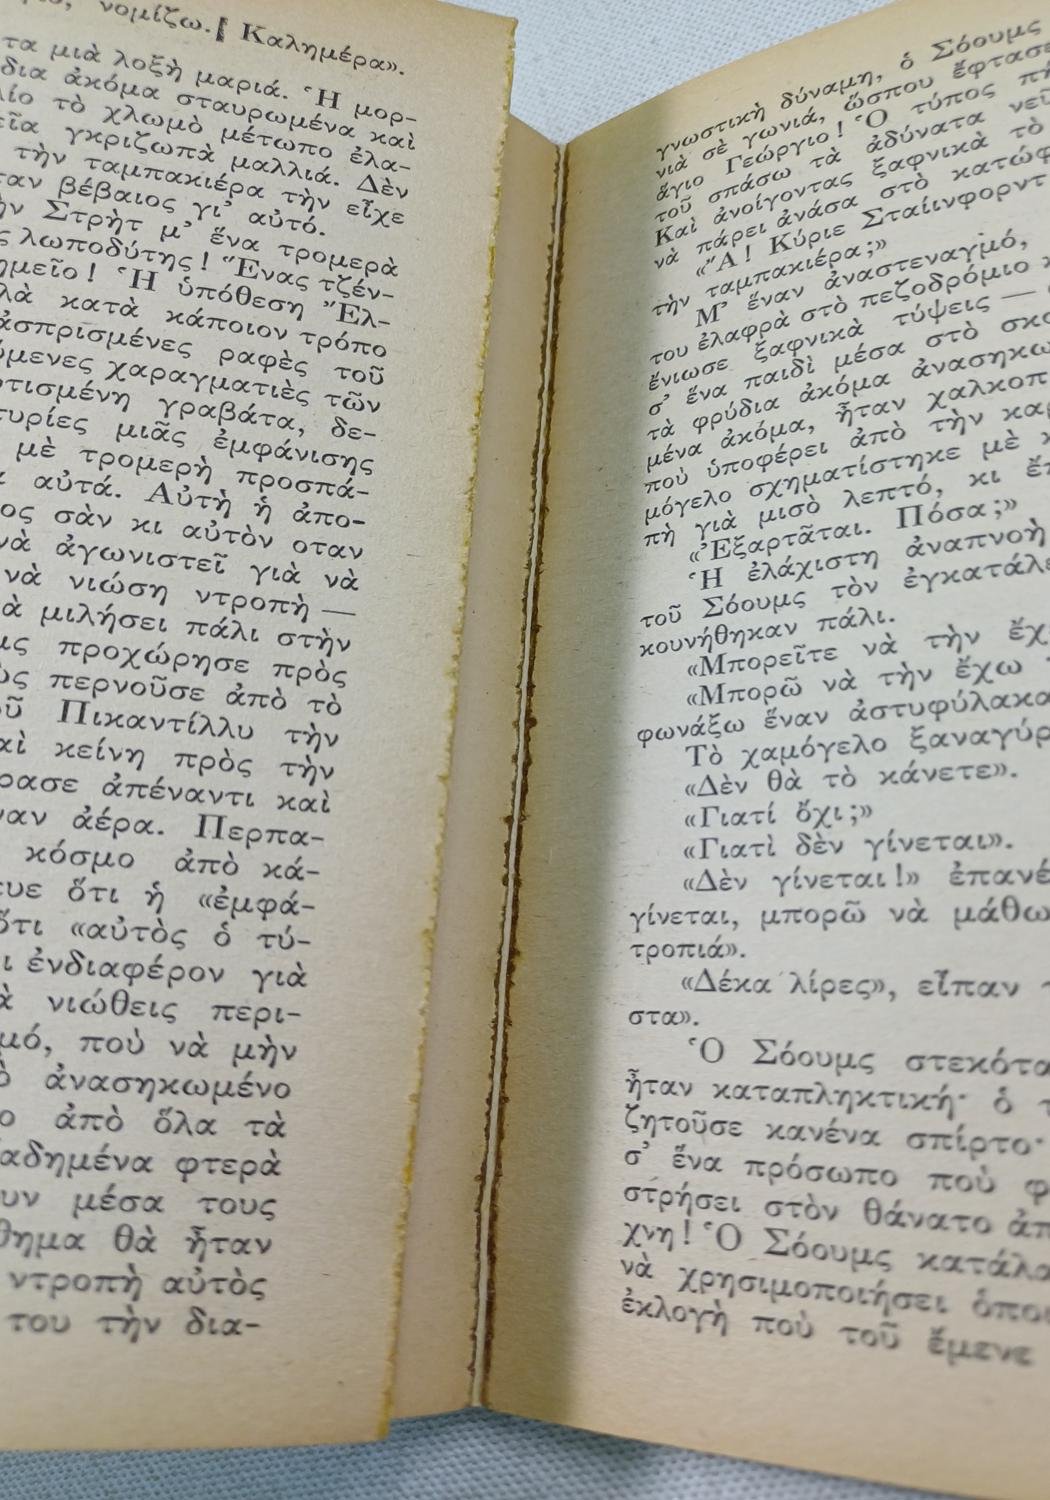 νομίζω. Καλημέρα».
τα μιὰ λοξὴ μαριά. Ἡ μορ-
δια ἀκόμα σταυρωμένα καὶ
τὸ χλωμὸ μέτωπο ἐλα-
γκριζωπὰ μαλλιά. Δὲν
τὴν ταμπακιέρα τὴν εἶχε
ταν βέβαιος γι’ αὐτό.
Στρὴτ μ’ ἕνα τρομερὰ
λωποδύτης! Ἕνας τζέν-
ημεῖο! Ἡ ὑπόθεση Ἔλ-
λὰ κατὰ κάποιον τρόπο
ἀσπρισμένες ραφὲς τοῦ
όμενες χαραγματιὲς τῶν
τισμένη γραβάτα, δε-
τυρίες μιᾶς ἐμφάνισης
μὲ τρομερὴ προσπά-
αὐτά. Αὐτὴ ἡ ἀπο-
ος σὰν κι αὐτὸν οταν
νὰ ἀγωνιστεῖ γιὰ νὰ
νὰ νιώση ντροπὴ —
ὰ μιλήσει πάλι στὴν
μς προχώρησε πρὸς
ὸς περνοῦσε ἀπὸ τὸ
οῦ Πικαντίλλυ τὴν
αὶ κείνη πρὸς τὴν
ρασε ἀπέναντι καὶ
ναν ἀέρα. Περπα-
κόσμο ἀπὸ κά-
ευε ὅτι ἡ «ἐμφά-
ὅτι «αὐτὸς ὁ τύ-
ι ἐνδιαφέρον γιὰ
ὰ νιώθεις περι-
μό, ποὺ νὰ μὴν
ὸ ἀνασηκωμένο
ο ἀπὸ ὅλα τὰ
αδημένα φτερὰ
υν μέσα τους
θημα θὰ ἦταν
ντροπὴ αὐτὸς
του τὴν δια-
γνωστικὴ δύναμη, ὁ Σόουμς
νιὰ σὲ γωνιά, ὥσπου ἔφτασε
ἅγιο Γεώργιο! Ὁ τύπος πή
τοῦ σπάσω τὰ ἀδύνατα νεῦ
Καὶ ἀνοίγοντας ξαφνικὰ τὸ
νὰ πάρει ἀνάσα στὸ κατώφ
«Ἄ! Κύριε Σταίινφορντ
τὴν ταμπακιέρα;»
Μ’ ἕναν ἀναστεναγμό,
του ἐλαφρὰ στὸ πεζοδρόμιο
ἔνιωσε ξαφνικὰ τύψεις —
σ’ ἕνα παιδὶ μέσα στὸ σκο
τὰ φρύδια ἀκόμα ἀνασηκω
μένα ἀκόμα, ἦταν χαλκοπ
ποὺ ὑποφέρει ἀπὸ τὴν καρ
μόγελο σχηματίστηκε μὲ
πὴ γιὰ μισὸ λεπτό, κι
«Ἐξαρτᾶται. Πόσα;»
Ἡ ἐλάχιστη ἀναπνοὴ
τοῦ Σόουμς τὸν ἐγκατάλε
κουνήθηκαν πάλι.
«Μπορεῖτε νὰ τὴν ἔχ
«Μπορῶ νὰ τὴν ἔχω
φωνάξω ἕναν ἀστυφύλακα
Τὸ χαμόγελο ξαναγύρ
«Δὲν θὰ τὸ κάνετε».
«Γιατί ὄχι;»
«Γιατὶ δὲν γίνεται».
«Δὲν γίνεται!» ἐπανέ
γίνεται, μπορῶ νὰ μάθω
τροπιά».
«Δέκα λίρες», εἶπαν
στα».
Ὁ Σόουμς στεκότα
ἦταν καταπληκτική· ὁ
ζητοῦσε κανένα σπίρτο·
σ’ ἕνα πρόσωπο ποὺ φ
στρήσει στὸν θάνατο ἀπ
χνη! Ὁ Σόουμς κατάλα
νὰ χρησιμοποιήσει ὁποι
ἐκλογὴ ποὺ τοῦ ἔμενε